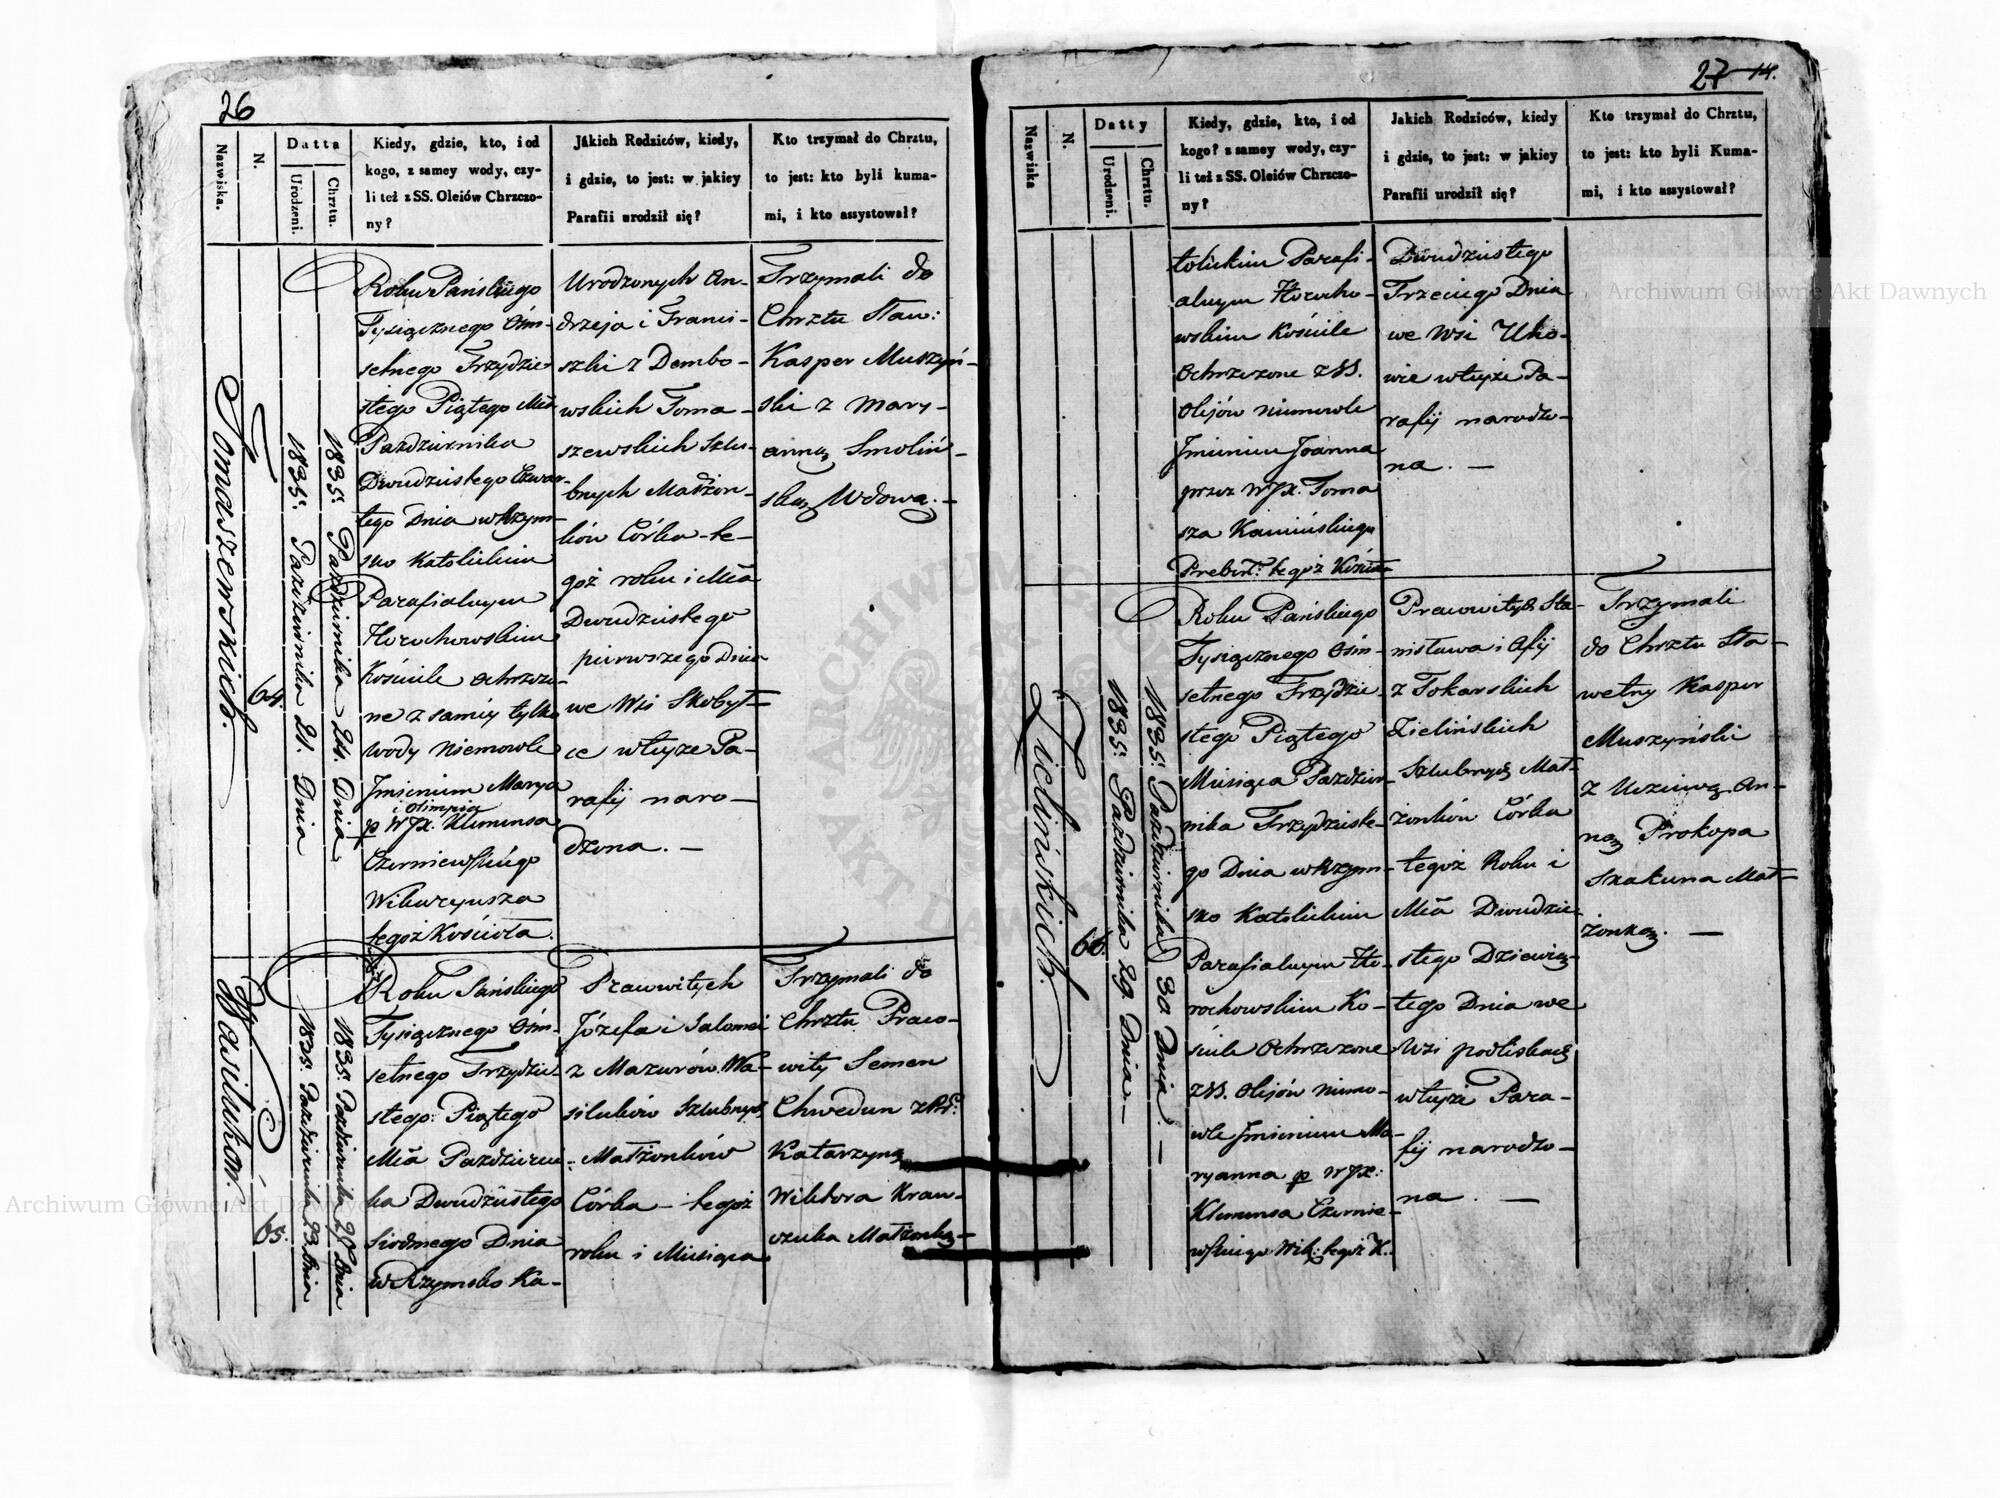 26
Nazwiska.
N.
Datta
Urodzeni.
Chrztu.
Kiedy, gdzie, kto, i od
kogo, z samey wody, czy-
li też z SS. Oleiów Chrzczo-
ny?
Jakich Rodziców, kiedy,
i gdzie, to jest: w jakiey
Parafii urodził się?
Kto trzymał do Chrztu,
to jest: kto byli kuma-
mi, i kto assystował?
Tomaszewskich.
64.
1835. Października 21. Dnia
1835. Października 24. Dnia
Roku Pańskiego
Tysiącznego Ośm-
setnego Trzydzie
stego Piątego Mca
Października
Dwudziestego Czwar-
tego Dnia w Rzym-
sko Katolickim
Parafialnym
Horochowskim
Kościele ochrzczo-
ne z samey tylko
wody Niemowle
Imieniem Marya
i Olimpia
p WJX. Klemensa
Czerniewskiego
Wikaryusza
tegoż Kościoła.
Urodzonych An-
drzeja i Franci-
szki z Dembo-
wskich Toma-
szewskich Szlu-
bnych Małżon-
ków Córka te-
goż roku i Mca
Dwudziestego
pierwszego Dnia
we Wsi Skobył-
ce w tejże Pa-
rafij naro-
dzona. —
Trzymali do
Chrztu Staw:
Kasper Muszyń-
ski z Mary-
anną Smoliń-
ską Wdową. —
Wasiluków.
65.
1835. Października 23. Dnia
1835. Października 27. Dnia
Roku Pańskiego
Tysiącznego Ośm-
setnego Trzydzie
stego Piątego
Mca Październi-
ka Dwudziestego
Siódmego Dnia
w Rzymsko Ka-
Pracowitych
Józefa i Salomei
z Mazurów Wa-
siluków Szlubnych
Małżonków
Córka tegoż
roku i Miesiąca
Trzymali do
Chrztu Praco-
wity Semen
Chwedun z
Katarzyną
Wiktora Kraw-
czuka Małżonką —
27 14.
Nazwiska
N.
Datty
Urodzeni.
Chrztu.
Kiedy, gdzie, kto, i od
kogo? z samey wody, czy-
li też z SS. Oleiów Chrzczo-
ny?
Jakich Rodziców, kiedy
i gdzie, to jest: w jakiey
Parafii urodził się?
Kto trzymał do Chrztu,
to jest: kto byli Kuma-
mi, i kto assystował?
tolickim Parafi-
alnym Horocho-
wskim Kościele
Ochrzczone z SS.
Olejów niemowle
Imieniem Joanna
przez WJX. Toma
sza Kamińskiego
Prebit: tegoż Kościoła
Dwudziestego
Trzeciego Dnia
we Wsi Uho-
wie w tejże Pa-
rafij narodzo-
na. —
Zielińskich.
66.
1835. Października 29. Dnia —
1835. Października 30 Dnia. —
Roku Pańskiego
Tysiącznego Ośm-
setnego Trzydzie-
stego Piątego
Miesiąca Paździer-
nika Trzydzieste-
go Dnia w Rzym-
sko Katolickim
Parafialnym Ho-
rochowskim Ko-
ściele Ochrzczone
z SS. Olejów niemo-
wle Imieniem Ma-
ryanna p WJX:
Klemensa Czernie-
wskiego Wik: tegoż K.
Pracowitych Sta-
nisława i Afij
z Tokarskich
Zielińskich
Szlubnych Mał-
żonków Córka
tegoż Roku i
Mca Dwudzie-
stego Dziewią-
tego Dnia we
Wsi podliskach
w tejże Para-
fij narodzo-
na. —
Trzymali
do Chrztu Sta-
wetny Kasper
Muszyński
z Uczciwą An-
ną Prokopa
Szakuna Mał-
żonką. —
Archiwum Główne Akt Dawnych
Archiwum Główne Akt Dawnych
ARCHIWUM
AKT DAWNYCH